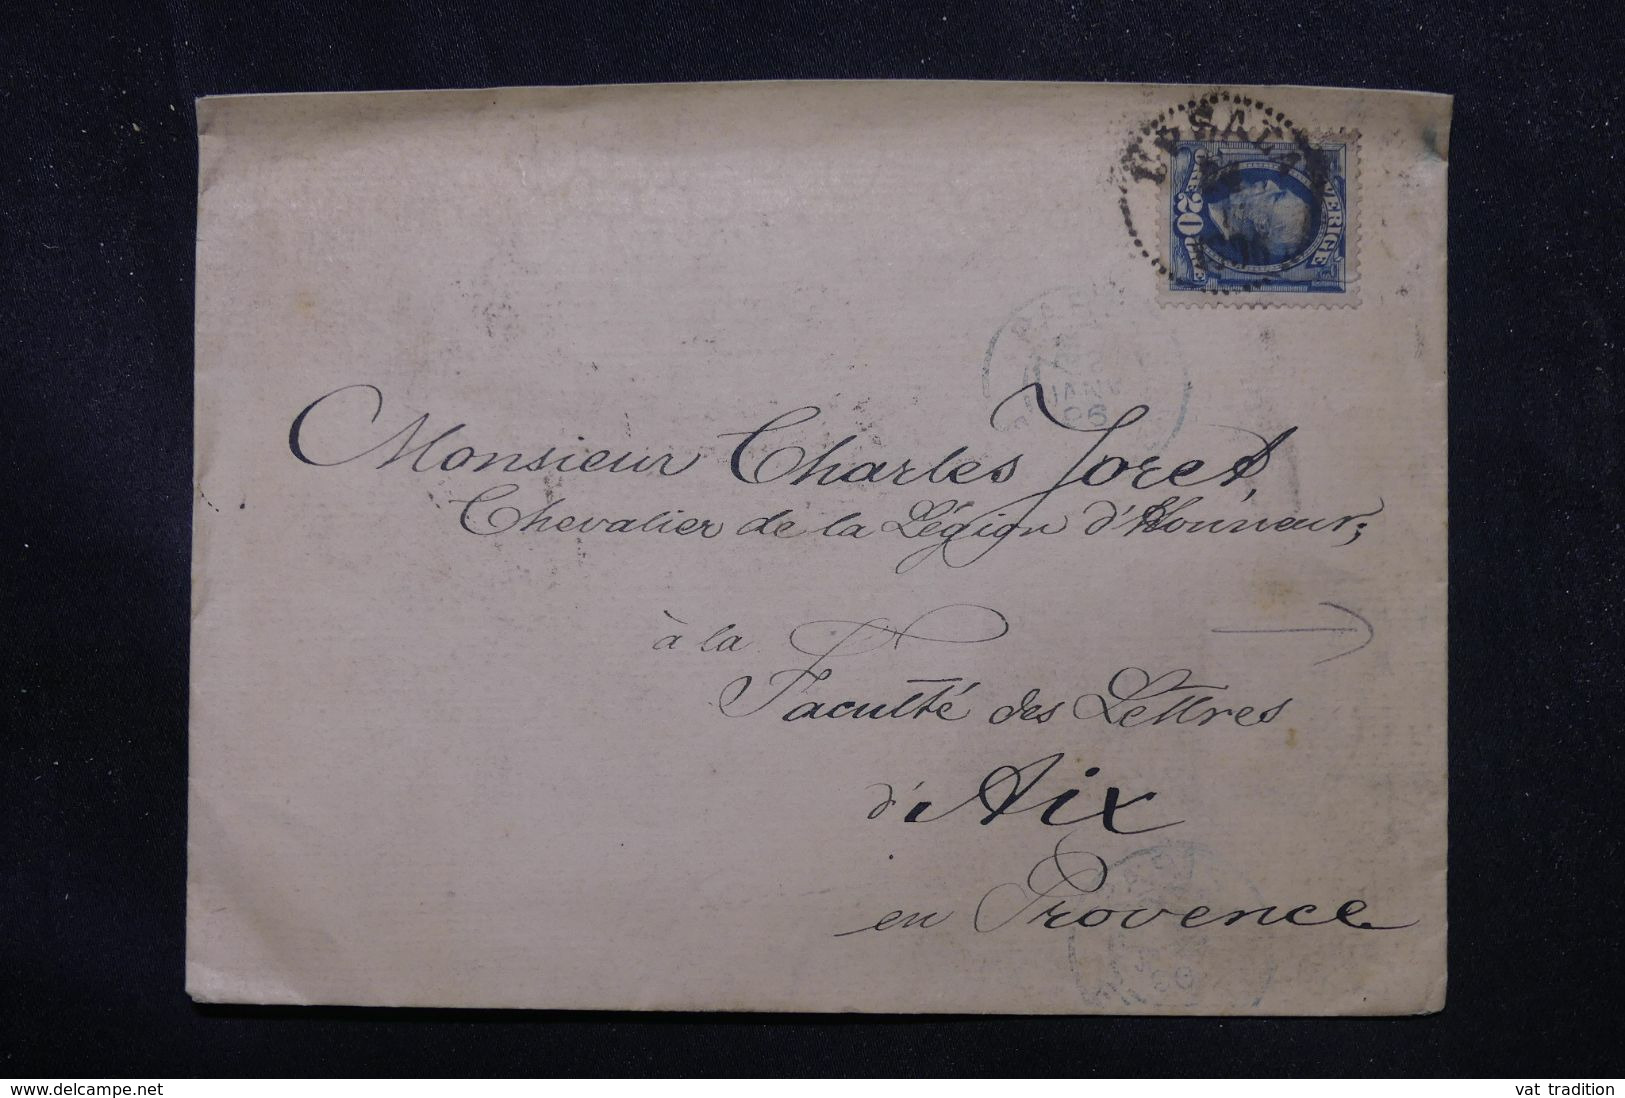 UPSALA
SVERIGE
20
PARIS
JANV
96
Monsieur Charles Joret,
Chevalier de la Légion d'Honneur,
à la
Faculté des Lettres
d'Aix
en Provence
www.delcampe.net
vat tradition